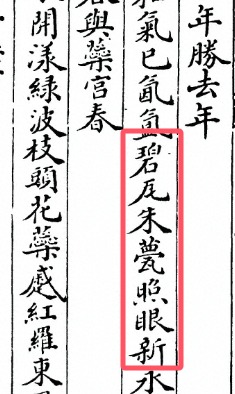 年勝去年
氣已氤氳碧瓦朱甍照眼新水
與蘂宮春
開漾綠波枝頭花蘂蹙紅羅東